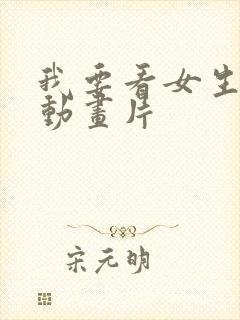 我要看女生
動畫片
宋元明